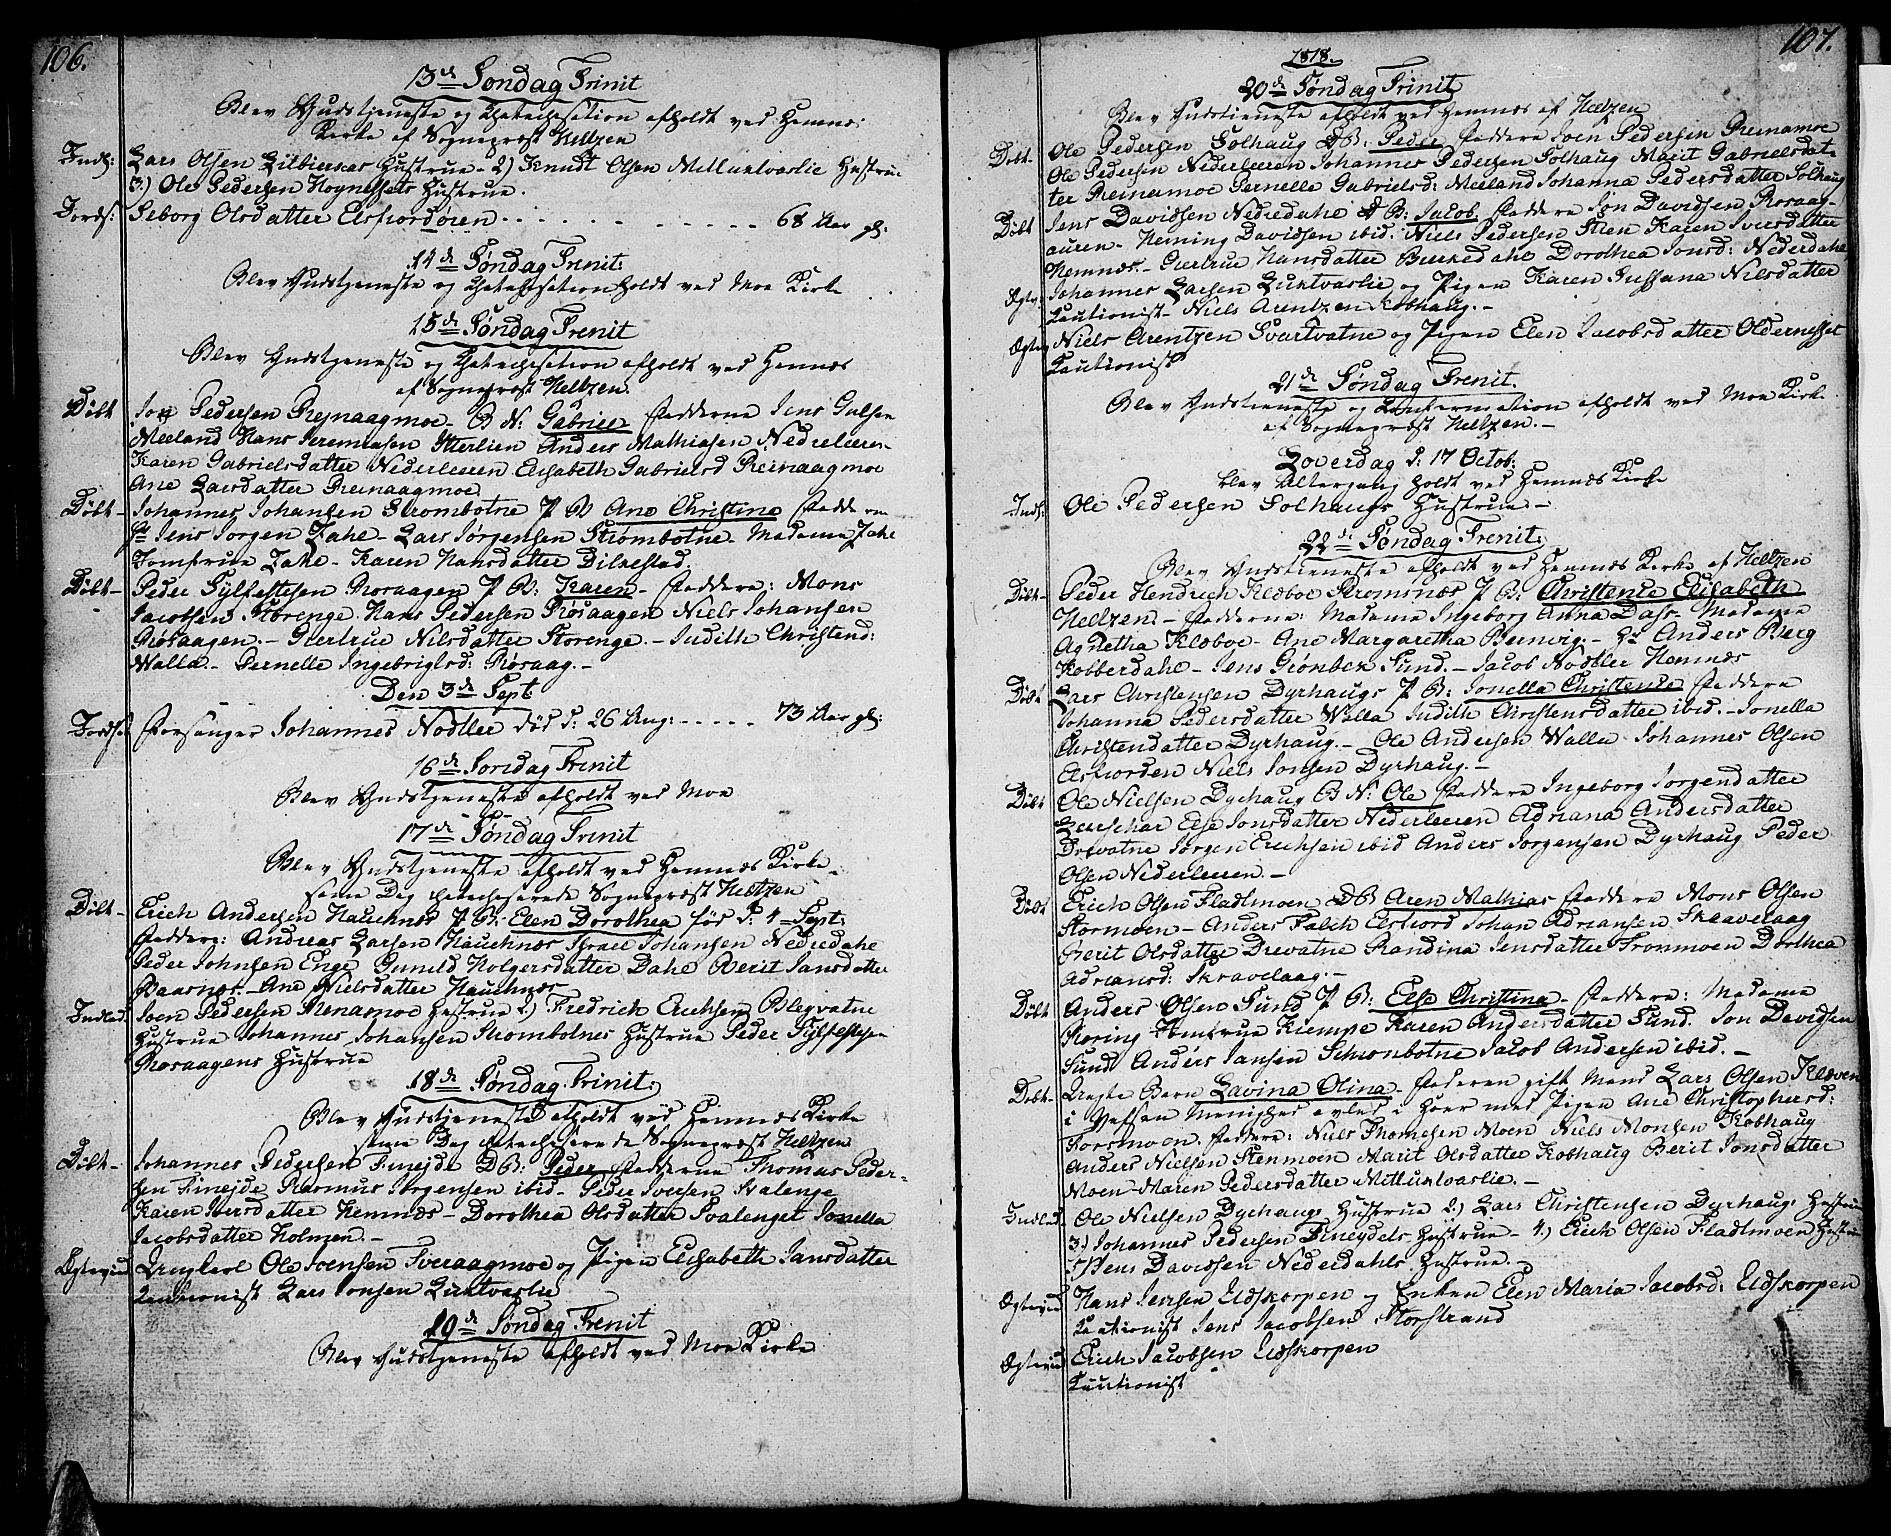 106.
13de Søndag Trinit
Blev Gudstjeneste og Catechisation afholdt ved Hemnæs
Kirke af Sognepræst Heltzen
Indl: Lars Olsen Hustrue - 2) Knudt Olsen Hustrue
3.) Ole Pedersen Hustrue.
Jords: Seborg Olsdatter Elsfiordøren - - - - - 68 Aar gl:
14de Søndag Trenit:
Blev Gudstjeneste og Catechisation holdt ved Moe Kirke
15de Søndag Trenit
Blev Gudstjeneste og Catechisation afholdt ved Hemnæs
af Sognepræst Heltzen.
Døbt Jon Pedersen Reinaagmoe B N: Gabriel Fadderne Jens
Meeland Hans Jeremiasen Anders Mathiasen
Karen Gabrielsdatter Nederleeren Elisabeth Gabrielsd Reinaagmoe
Ane Larsdatter Reinaagmoe
Døbt - Johannes Johansen Strømbotne P B Ane Christine Faddere
Hr Jens Jørgen Zahe - Lars Jørgensen Strømbotne - Madame Zahe
Jomfrue Zahe - Karen Hansdatter
Døbt - Peder Sylfestesen Røraagen P B: Karen - Faddere: Mons
Jacobsen Storenge Hans Pedersen Røsaagen Niels Johansen
Røsaagen. - Giertrue Nilsdatter Storenge. - Judith Christend:
Walla. - Pernelle Ingebriglsd: Røsaag. -
Den 3de Sept
Jords: Forsanger Johannes Nodtler død d: 26 Aug: - - - - - 73 Aar gl:
16de Søndag Trinit
Blev Gudstjeneste afholdt ved Moe
17de Søndag Trinit
Blev Gudstjeneste afholdt ved Hemnæs Kirke
samme Dag Catechiserede Sognepræst Heltzen
Døbt - Erich Andersen Hauchnes P B: Elen Dorothea før d: 4 Sept:
Faddere: Andreas Larsen Hauchnæs Israel Johansen Nedredahe
Peder Johnsen Enge Gunild Holgersdatter Dahe Berit Jansdatter
Baarnæs. - Ane Nielsdatter Hauchnæs
Indled. Joen Pedersen Hustrue 2) Fredrich Erichsen
Hustrue Johannes Johansen Strombotnes Hustrue Peder Sylfestesen
Røraagens Hustrue
18de Søndag Trinit:
Blev Gudstjeneste afholdt ved Hemnæs Kirke
samme Dag Catechiserede Sognepræst Heltzen
Døbt - Johannes Pedersen Finejde D B: Peder Fadderne Thomas Peder-
sen Finejde Rasmus Jørgensen ibid - Peder Iversen Svalenge
Karen Iversdatter Hemnæs - Dorothea Olsdatter Svalenget Jonella
Jacobsdatter Holmen. -
Ægteviet Ungkarl Ole Svensen Sveraagmoe og Pigen Elisabeth Jansdatter
Cautionist Lars Jonsen
19de Søndag Trenit
Blev Gudstjeneste afholdt ved Moe Kirke
107.
1818.
20de Søndag Trinit
Blev Gudstieneste afholdt ved Hemnæs af Heltzen
Døbt. Ole Pedersen Solhaug D B: Peder Faddere Joen Pedersen
Ole Pedersen Nederleeren Johannes Pedersen Solhaug Marit Gabrielsdat-
ter Pernelle Gabrielsd: Meeland Johanna Pedersdatter Solhaug
Døbt Jens Davidsen Nedredahe D B: Jacob Faddere Jon Davidsen Røraag-
auren - Heming Davidsen ibid. Niels Pedersen Karen Iversdatter
Hemnæs. - Giertrue Hansdatter Dorothea Jonsd: Nederdahe
Ægtv: Johannes Larsen og Pigen Karen Sussana Nilsdatter
Cautionist - Niels Arentzen Kobhaug. -
Ægtev Niels Arentzen Svartvatne og Pigen Elen Jacobsdatter Oldernesset
Cautionist
21de Søndag Trenit.
Blev Gudstieneste og Confermation afholdt ved Moe Kirke
af Sognepræst Heltzen. -
Loverdag d: 17 Octob:
blev Altergang holdt ved Hemnæs Kirke
Indl: Ole Pedersen Solhaugs Hustrue. -
22de Søndag Trenit:
Blev Gudstieneste afholdt ved Hemnæs Kirke af Heltzen
Døbt - Peder Hendrich Klæboe P B: Christence Elisabeth
Heltzen. - Fadderne: Madame Ingeborg Anna Dass. Madame
Agnetha Klæboe - Ane Margaretha - Hr Anders Bierg
Kobberdahe - Jens Sund. - Jacob Nodtler Hemnæs
Døbt Lars Christensen Dyrhaugs P B: Jonella Christence Faddere
Johanna Pedersdatter Walla Judith Christensdatter ibid. - Jonella
Christendatter Dyrhaug. - Ole Andersen Walla Johannes Olsen
Elsfiorden Niels Jonsen Dyrhaug. -
Døbt Ole Nielsen Dyrhaug B N: Ole Faddere Ingeborg Jørgendatter
Else Jonsdatter Nederleeren Adriana Andersdatter
Drevatne Jørgen Erichsen ibid Anders Jørgensen Dyrhaug Peder
Olsen Nederleeren. -
Døbt Erich Olsen Fladtmoen D B Aren Mathias Faddere Mons Olsen
Stormoen - Anders Falch Elsfiord Johan Adriansen Skravelaag
Berit Olsdatter Drevatne Randina Jensdatter Dorthea
Adriansd: Skravelaag. -
Døbt Anders Olsen Sund P B: Else Christina - Faddere: Madame
Jomfrue Karen Andersdatter Sund. Jon Davidsen
Sund Anders Jansen Jacob Andersen ibid. -
Døbt - Uægte Barn Lavina Olina - Faderen gift Mand Lars Olsen
i Vefsen Menighed avlet i Hoer med Pigen Ane Christophersd:
Forsmoen. Faddere: Niels Thomesen Moen Niels Monsen Kobhaug
Anders Nielsen Stenmoen Marit Olsdatter Kobhaug Berit Jonsdatter
Moen - Maren Pedersdatter
Indled. Ole Nielsen Dyrhaugs Hustrue 2) Lars Christensen Dyrhaugs Hustrue
3.) Johannes Pedersen Fineydets Hustrue - 4) Erich Olsen Fladtmoen Hustrue
5) Jens Davidsen Nederdahls Hustrue. -
Ægteviet Hans Jensen Eldskorpen og Enken Elen Maria Jacobsd: Eldskorpen
Cautionist Jens Jacobsen Storstrand
Ægteviet Erich Jacobsen Eldskorpen
Cautionist